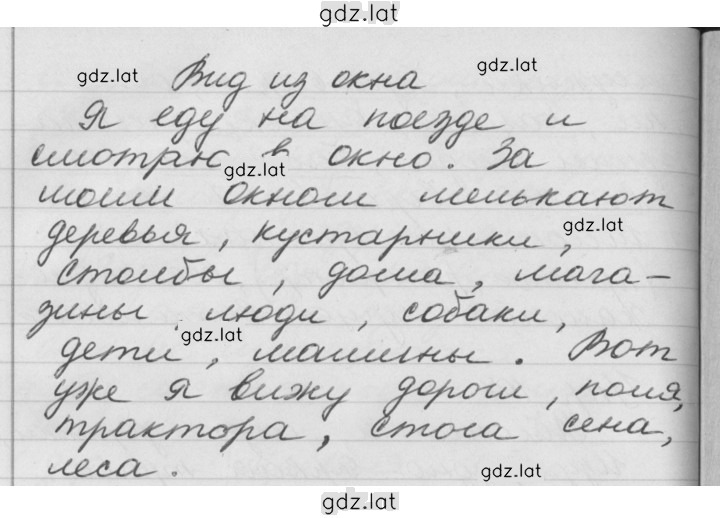 gdz.lat
gdz.lat Вид из окна gdz.lat
Я еду на поезде и
смотрю в окно. За
gdz.lat
моим окном мелькают
деревья, кустарники, gdz.lat
столбы, дома, мага-
зины, люди, собаки,
gdz.lat
дети, машины. Вот
уже я вижу дороги, поля,
трактора, стога сена,
леса.
gdz.lat
gdz.lat